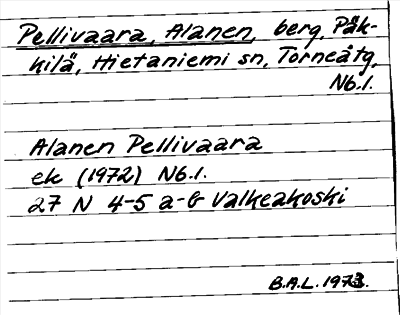 Pellivaara, Alanen, berg, Påk-
kilä, Hietaniemi sn, Torneåtg,
Nb.l.
Alanen Pellivaara
ek (1972) Nb.l.
27 N 4-5 a-b Valkeakoski
B.A.L. 1973.